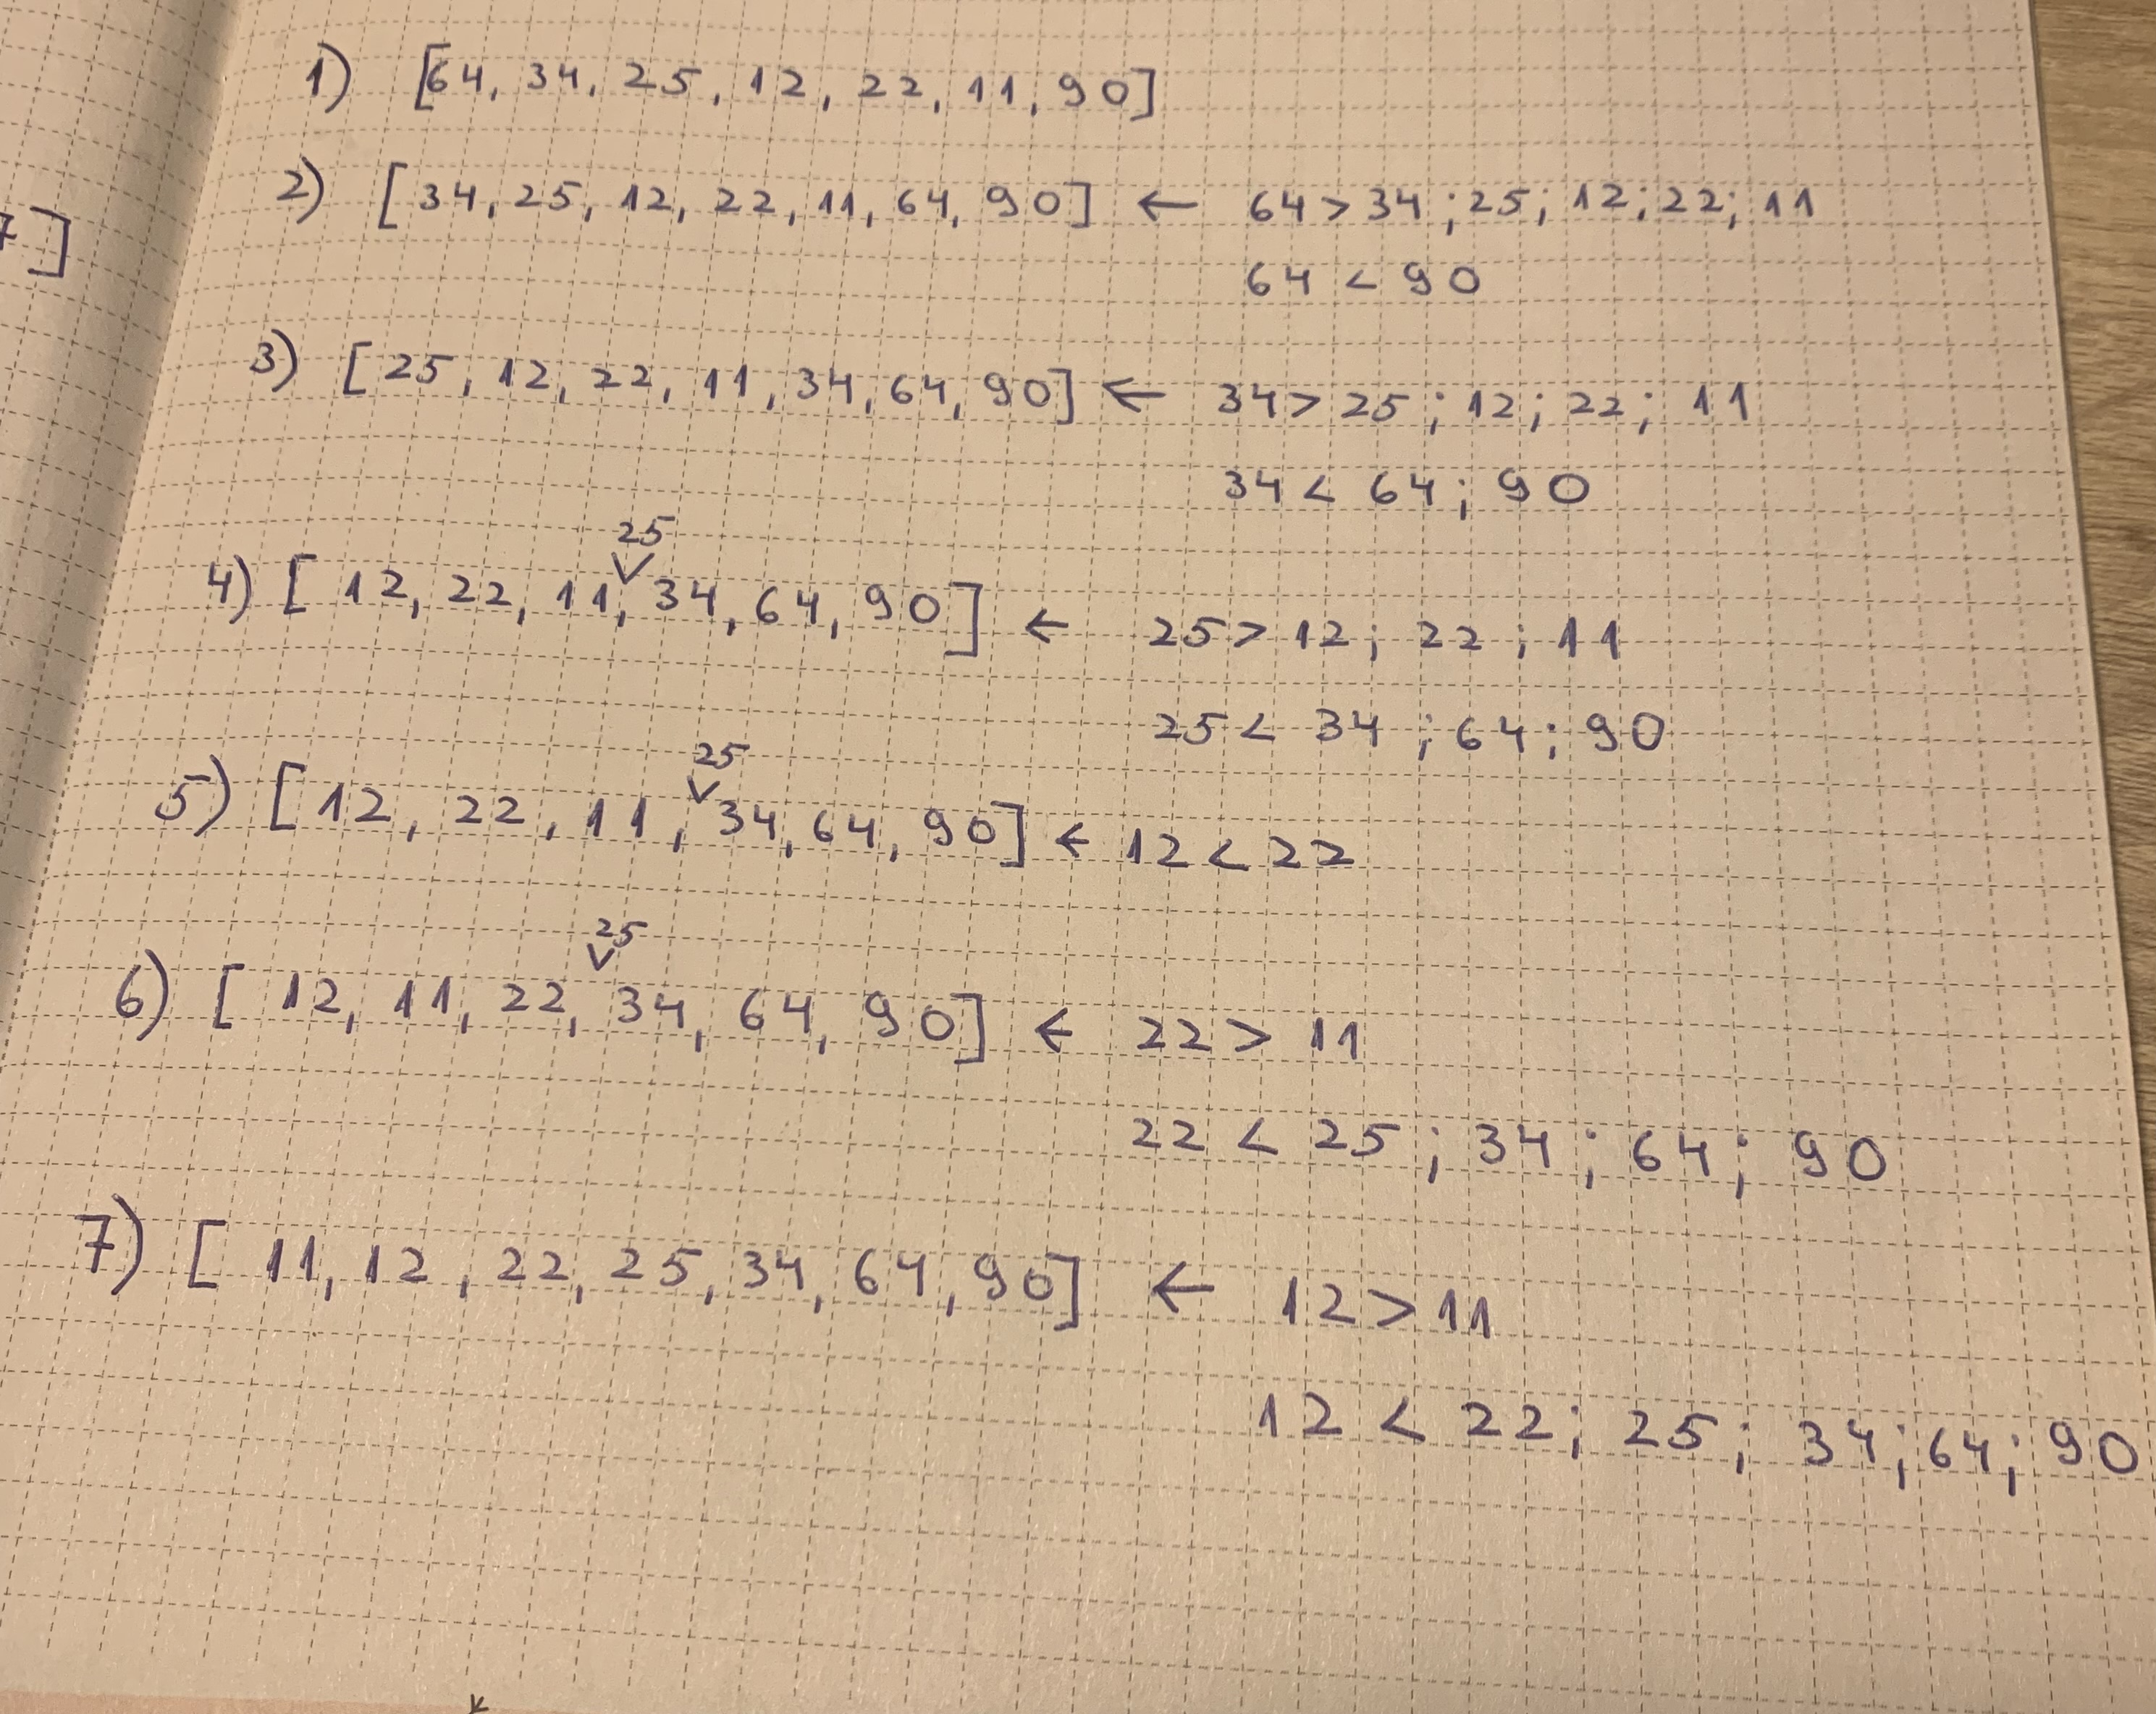 7]
1) [64, 34, 25, 12, 22, 11, 90]
2) [34, 25, 12, 22, 11, 64, 90] ← 64 > 34; 25; 12; 22; 11
64 < 90
3) [25, 12, 22, 11, 34, 64, 90] ← 34 > 25; 12; 22; 11
34 < 64; 90
25
4) [12, 22, 11, ∨ 34, 64, 90] ← 25 > 12; 22; 11
25 < 34; 64; 90
25
5) [12, 22, 11, ∨ 34, 64, 90] ← 12 < 22
25
6) [12, 11, 22, ∨ 34, 64, 90] ← 22 > 11
22 < 25; 34; 64; 90
7) [11, 12, 22, 25, 34, 64, 90] ← 12 > 11
12 < 22; 25; 34; 64; 90